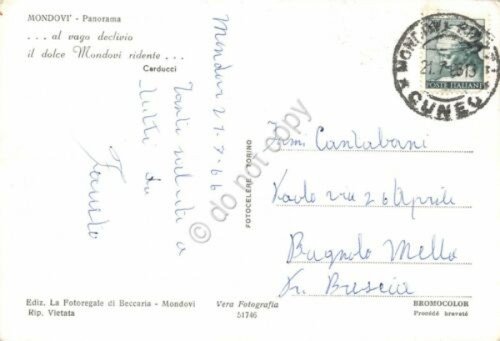 MONDOVI' - Panorama
... al vago declivio
il dolce Mondovì ridente ...
Carducci
Mondovì 21-7-66
Tanti saluti a
tutti da
MONDOVI
21.7.66 13
CUNEO
POSTE ITALIANE
Fam. Cantaboni
Via 26 Aprile
Bagnolo Mella
Pr. Brescia
FOTOCELERE TORINO
do not copy
Ediz. La Fotoregale di Beccaria - Mondovì
Rip. Vietata
Vera Fotografia
51746
BROMOCOLOR
Procédé breveté